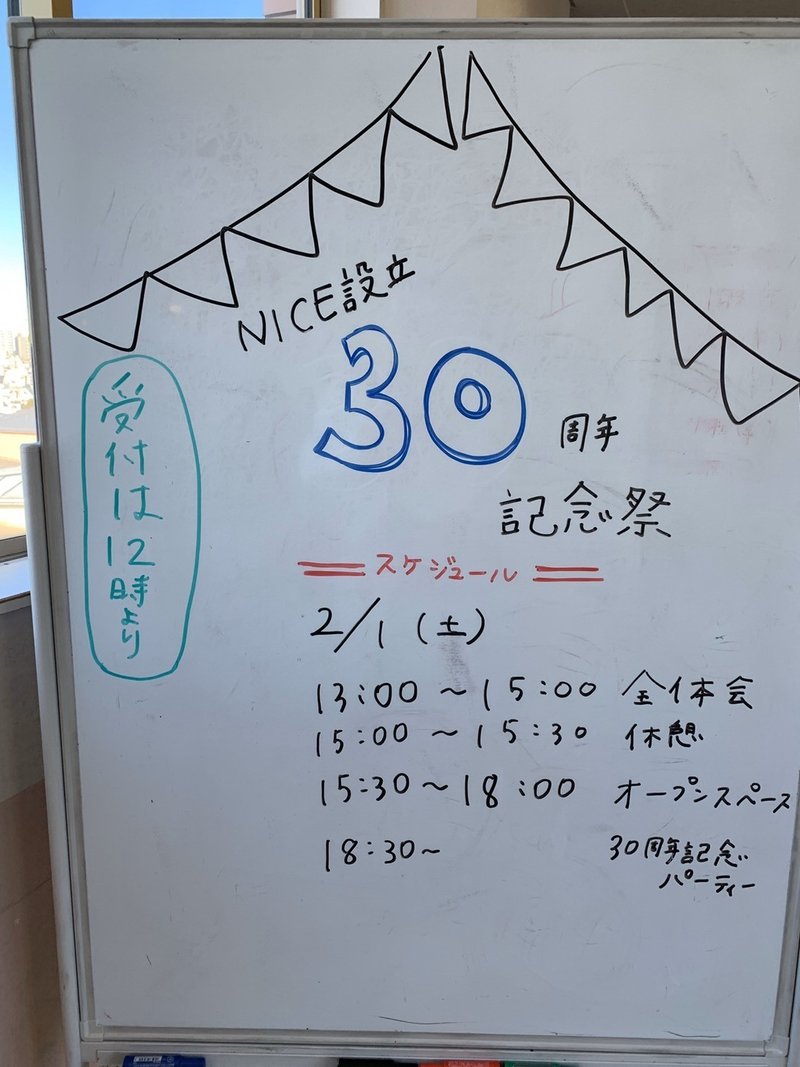 NICE設立
30
周年
記念祭
受付は12時より
スケジュール
2/1 (土)
13:00 ～ 15:00 全体会
15:00 ～ 15:30 休憩
15:30～18:00 オープンスペース
18:30～ 30周年記念
パーティー